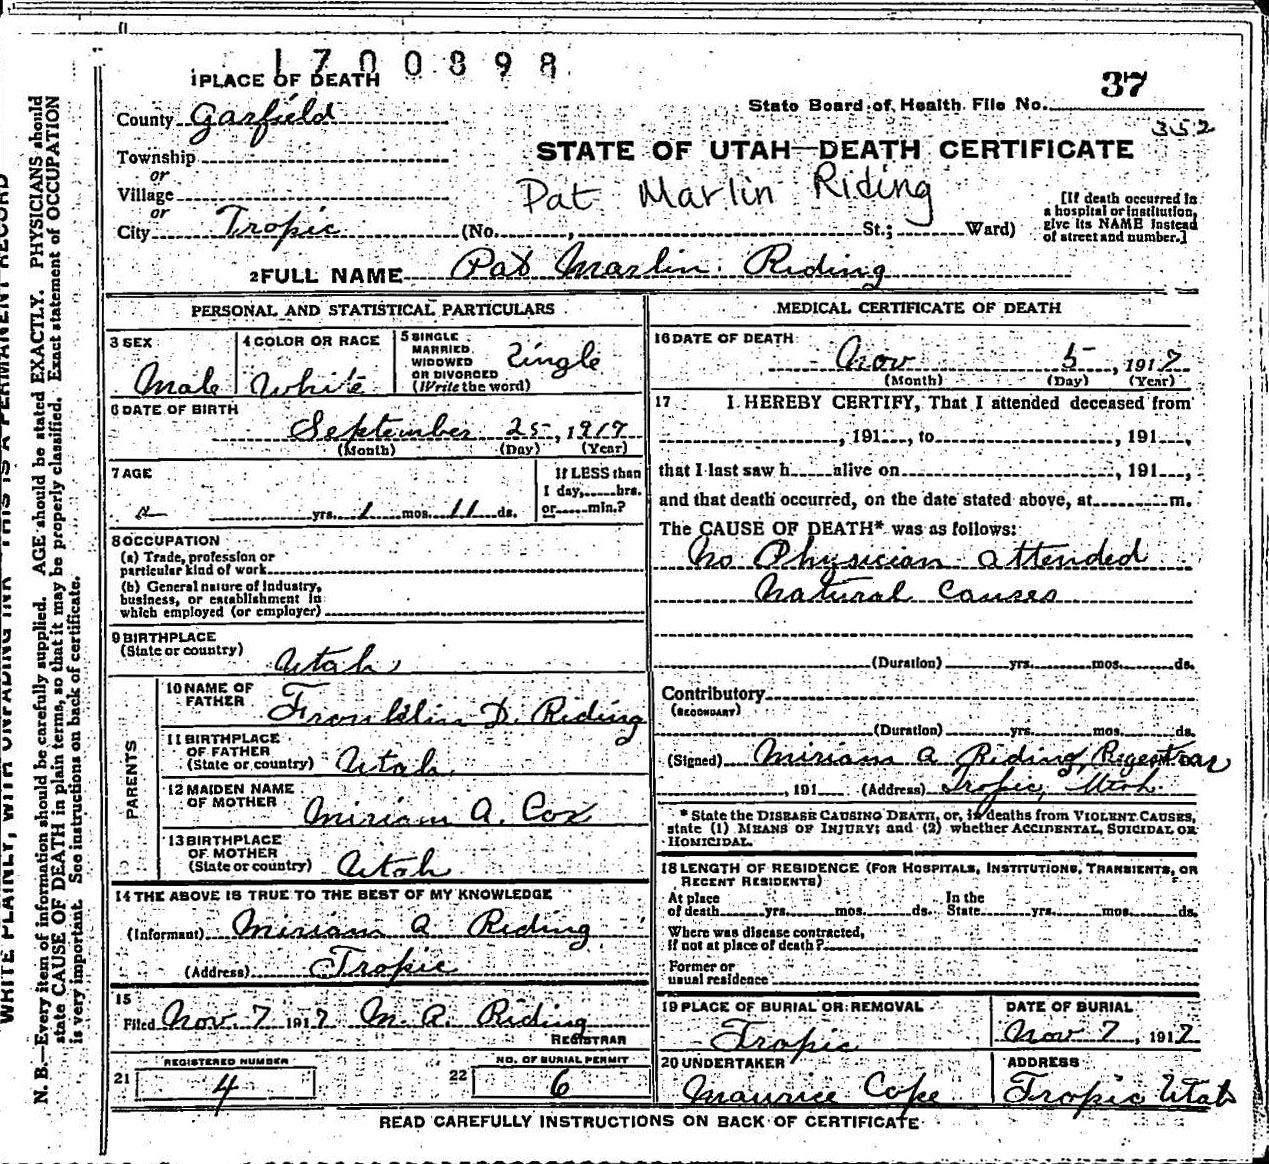 1700898
1 PLACE OF DEATH
37
State Board of Health File No.
352
County Garfield
STATE OF UTAH—DEATH CERTIFICATE
Township
or
Village
Pat Marlin Riding
[If death occurred in
a hospital or institution,
give its NAME instead
of street and number.]
or
City Tropic (No. , St.; Ward)
2 FULL NAME Pat Marlin Riding
PERSONAL AND STATISTICAL PARTICULARS
3 SEX
Male
4 COLOR OR RACE
White
5 SINGLE
MARRIED
WIDOWED
OR DIVORCED
(Write the word)
Single
6 DATE OF BIRTH
September 25, 1917
(Month) (Day) (Year)
7 AGE
yrs. 1 mos. 11 ds.
If LESS than
1 day, hrs.
or min.?
8 OCCUPATION
(a) Trade, profession or
particular kind of work
(b) General nature of industry,
business, or establishment in
which employed (or employer)
9 BIRTHPLACE
(State or country)
Utah
PARENTS
10 NAME OF
FATHER
Franklin D. Riding
11 BIRTHPLACE
OF FATHER
(State or country) Utah
12 MAIDEN NAME
OF MOTHER
Miriam A. Cox
13 BIRTHPLACE
OF MOTHER
(State or country) Utah
14 THE ABOVE IS TRUE TO THE BEST OF MY KNOWLEDGE
(Informant) Miriam A Riding
(Address) Tropic
15
Filed Nov. 7 1917 M. A. Riding
REGISTRAR
REGISTERED NUMBER
21 4
NO. OF BURIAL PERMIT
22 6
MEDICAL CERTIFICATE OF DEATH
16 DATE OF DEATH
Nov 5, 1917
(Month) (Day) (Year)
17 I HEREBY CERTIFY, That I attended deceased from
, 191 , to , 191 ,
that I last saw h alive on , 191 ,
and that death occurred, on the date stated above, at m.
The CAUSE OF DEATH* was as follows:
No Physician attended
Natural Causes
(Duration) yrs. mos. ds.
Contributory
(SECONDARY)
(Duration) yrs. mos. ds.
(Signed) Miriam A Riding, Regestrar
, 191 (Address) Tropic, Utah.
* State the DISEASE CAUSING DEATH, or, in deaths from VIOLENT CAUSES,
state (1) MEANS OF INJURY; and (2) whether ACCIDENTAL, SUICIDAL OR
HOMICIDAL.
18 LENGTH OF RESIDENCE (FOR HOSPITALS, INSTITUTIONS, TRANSIENTS, OR
RECENT RESIDENTS)
At place
of death yrs. mos. ds.
In the
State yrs. mos. ds.
Where was disease contracted,
if not at place of death?
Former or
usual residence
19 PLACE OF BURIAL OR REMOVAL
Tropic
DATE OF BURIAL
Nov 7, 1917
20 UNDERTAKER
Maurice Cope
ADDRESS
Tropic Utah
READ CAREFULLY INSTRUCTIONS ON BACK OF CERTIFICATE
N. B.—Every item of information should be carefully supplied. AGE should be stated EXACTLY. PHYSICIANS should
state CAUSE OF DEATH in plain terms, so that it may be properly classified. Exact statement of OCCUPATION
is very important. See instructions on back of certificate.
WRITE PLAINLY, WITH UNFADING INK—THIS IS A PERMANENT RECORD